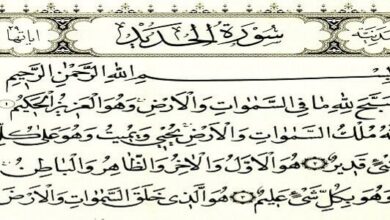 سُورَةُ الْحَدِيدِ اياتها
بِسْمِ اللهِ الرَّحْمٰنِ الرَّحِيمِ
سَبَّحَ لِلّٰهِ مَا فِى السَّمٰوَاتِ وَالْاَرْضِ وَهُوَ الْعَزِيزُ الْحَكِيمُ
لَهُ مُلْكُ السَّمٰوَاتِ وَالْاَرْضِ يُحْيٖ وَيُمِيتُ وَهُوَ عَلٰى كُلِّ
شَىْءٍ قَدِيرٌ هُوَ الْاَوَّلُ وَالْاٰخِرُ وَالظَّاهِرُ وَالْبَاطِنُ
وَهُوَ بِكُلِّ شَىْءٍ عَلِيمٌ هُوَ الَّذٖى خَلَقَ السَّمٰوَاتِ وَالْاَرْضَ